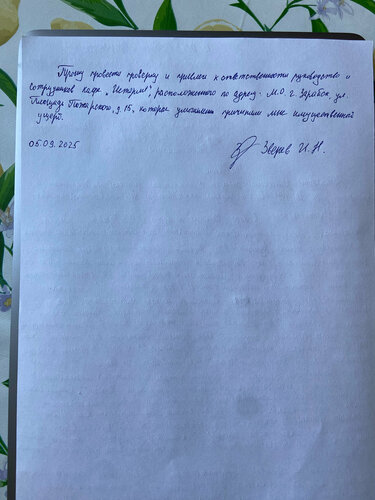 Прошу провести проверку и привлечь к ответственности руководство и
сотрудников кафе "История", расположенного по адресу: М.О. г. Зарайск, ул.
Площадь Пожарского, д. 15, которые умышленно причинили мне имущественный
ущерб.
05.09.2025
Зверев И.Н.